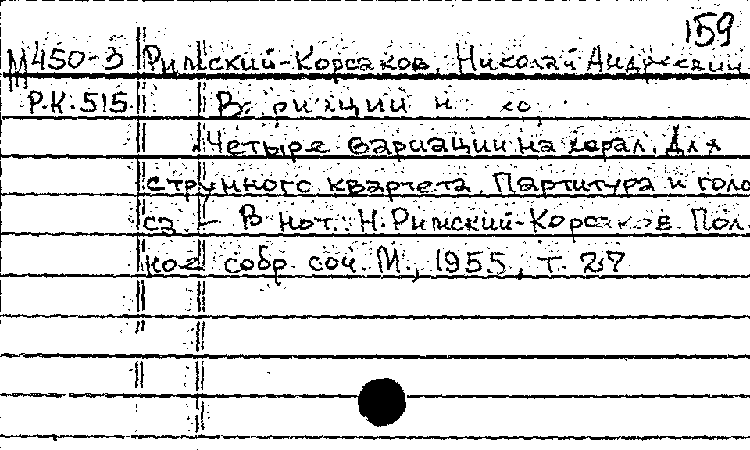 159
М450-3 Римский-Корсаков, Николай Андреевич
Р.К. 515
Четыре вариации на хорал. Для
струнного квартета. Партитура и голо
са. – В нот.: Н. Римский-Корсаков. Пол.
ное собр. соч. М., 1955, т. 27